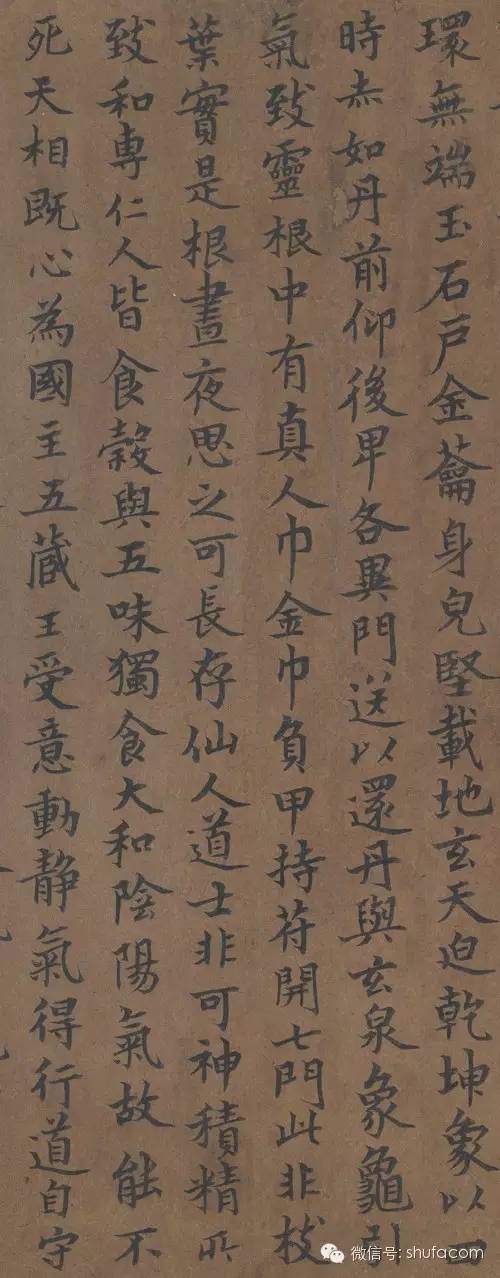 環無端玉石戶金蘥身皃堅載地玄天迫乾坤象以四
時赤如丹前仰後卑各異門送以還丹與玄泉象龜引
氣致靈根中有真人巾金巾負甲持苻開七門此非枝
葉實是根晝夜思之可長存仙人道士非可神積精所
致和專仁人皆食穀與五味獨食大和陰陽氣故能不
死天相既心為國主五藏王受意動靜氣得行道自守
微信号: shufacom